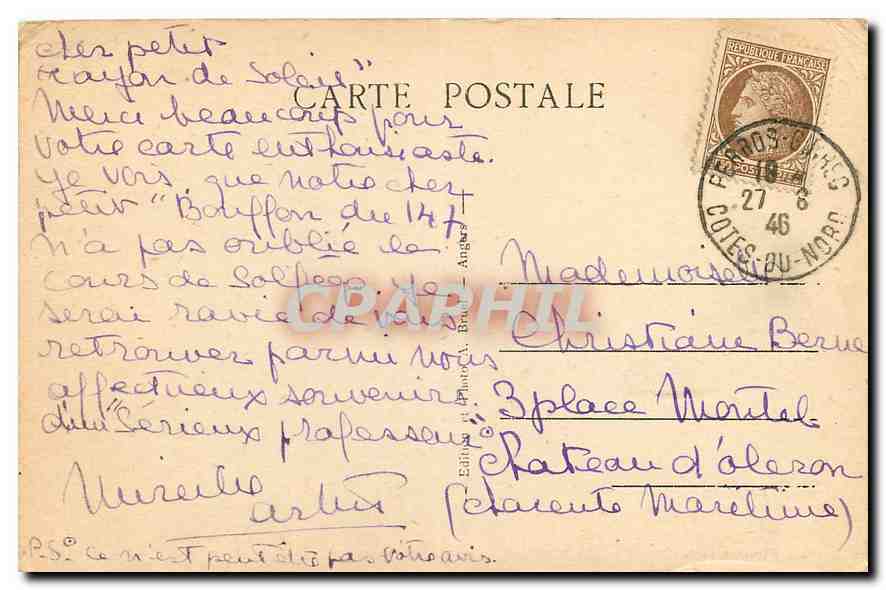 cher petit
rayon de Soleil"
CARTE POSTALE
Merci beaucoup pour
votre carte enthousiaste.
Je vois que notre cher
petit "Bouffon du 14
n'a pas oublié le
cours de Solfège je
serai ravie de vous
retrouver parmi nous
affectueux souvenir
d'un "Sérieux professeur"
Mireille
P.S. ce n'est peut être pas votre avis.
Edition et Photo A. Bruel — Angers
REPUBLIQUE FRANÇAISE
POSTES
PERROS-GUIREC
18
27 8
46
COTES-DU-NORD
Mademoiselle
Christiane Berne
3 place Montel
Chateau d'oleron
(charente Maritime)
CPAPHIL